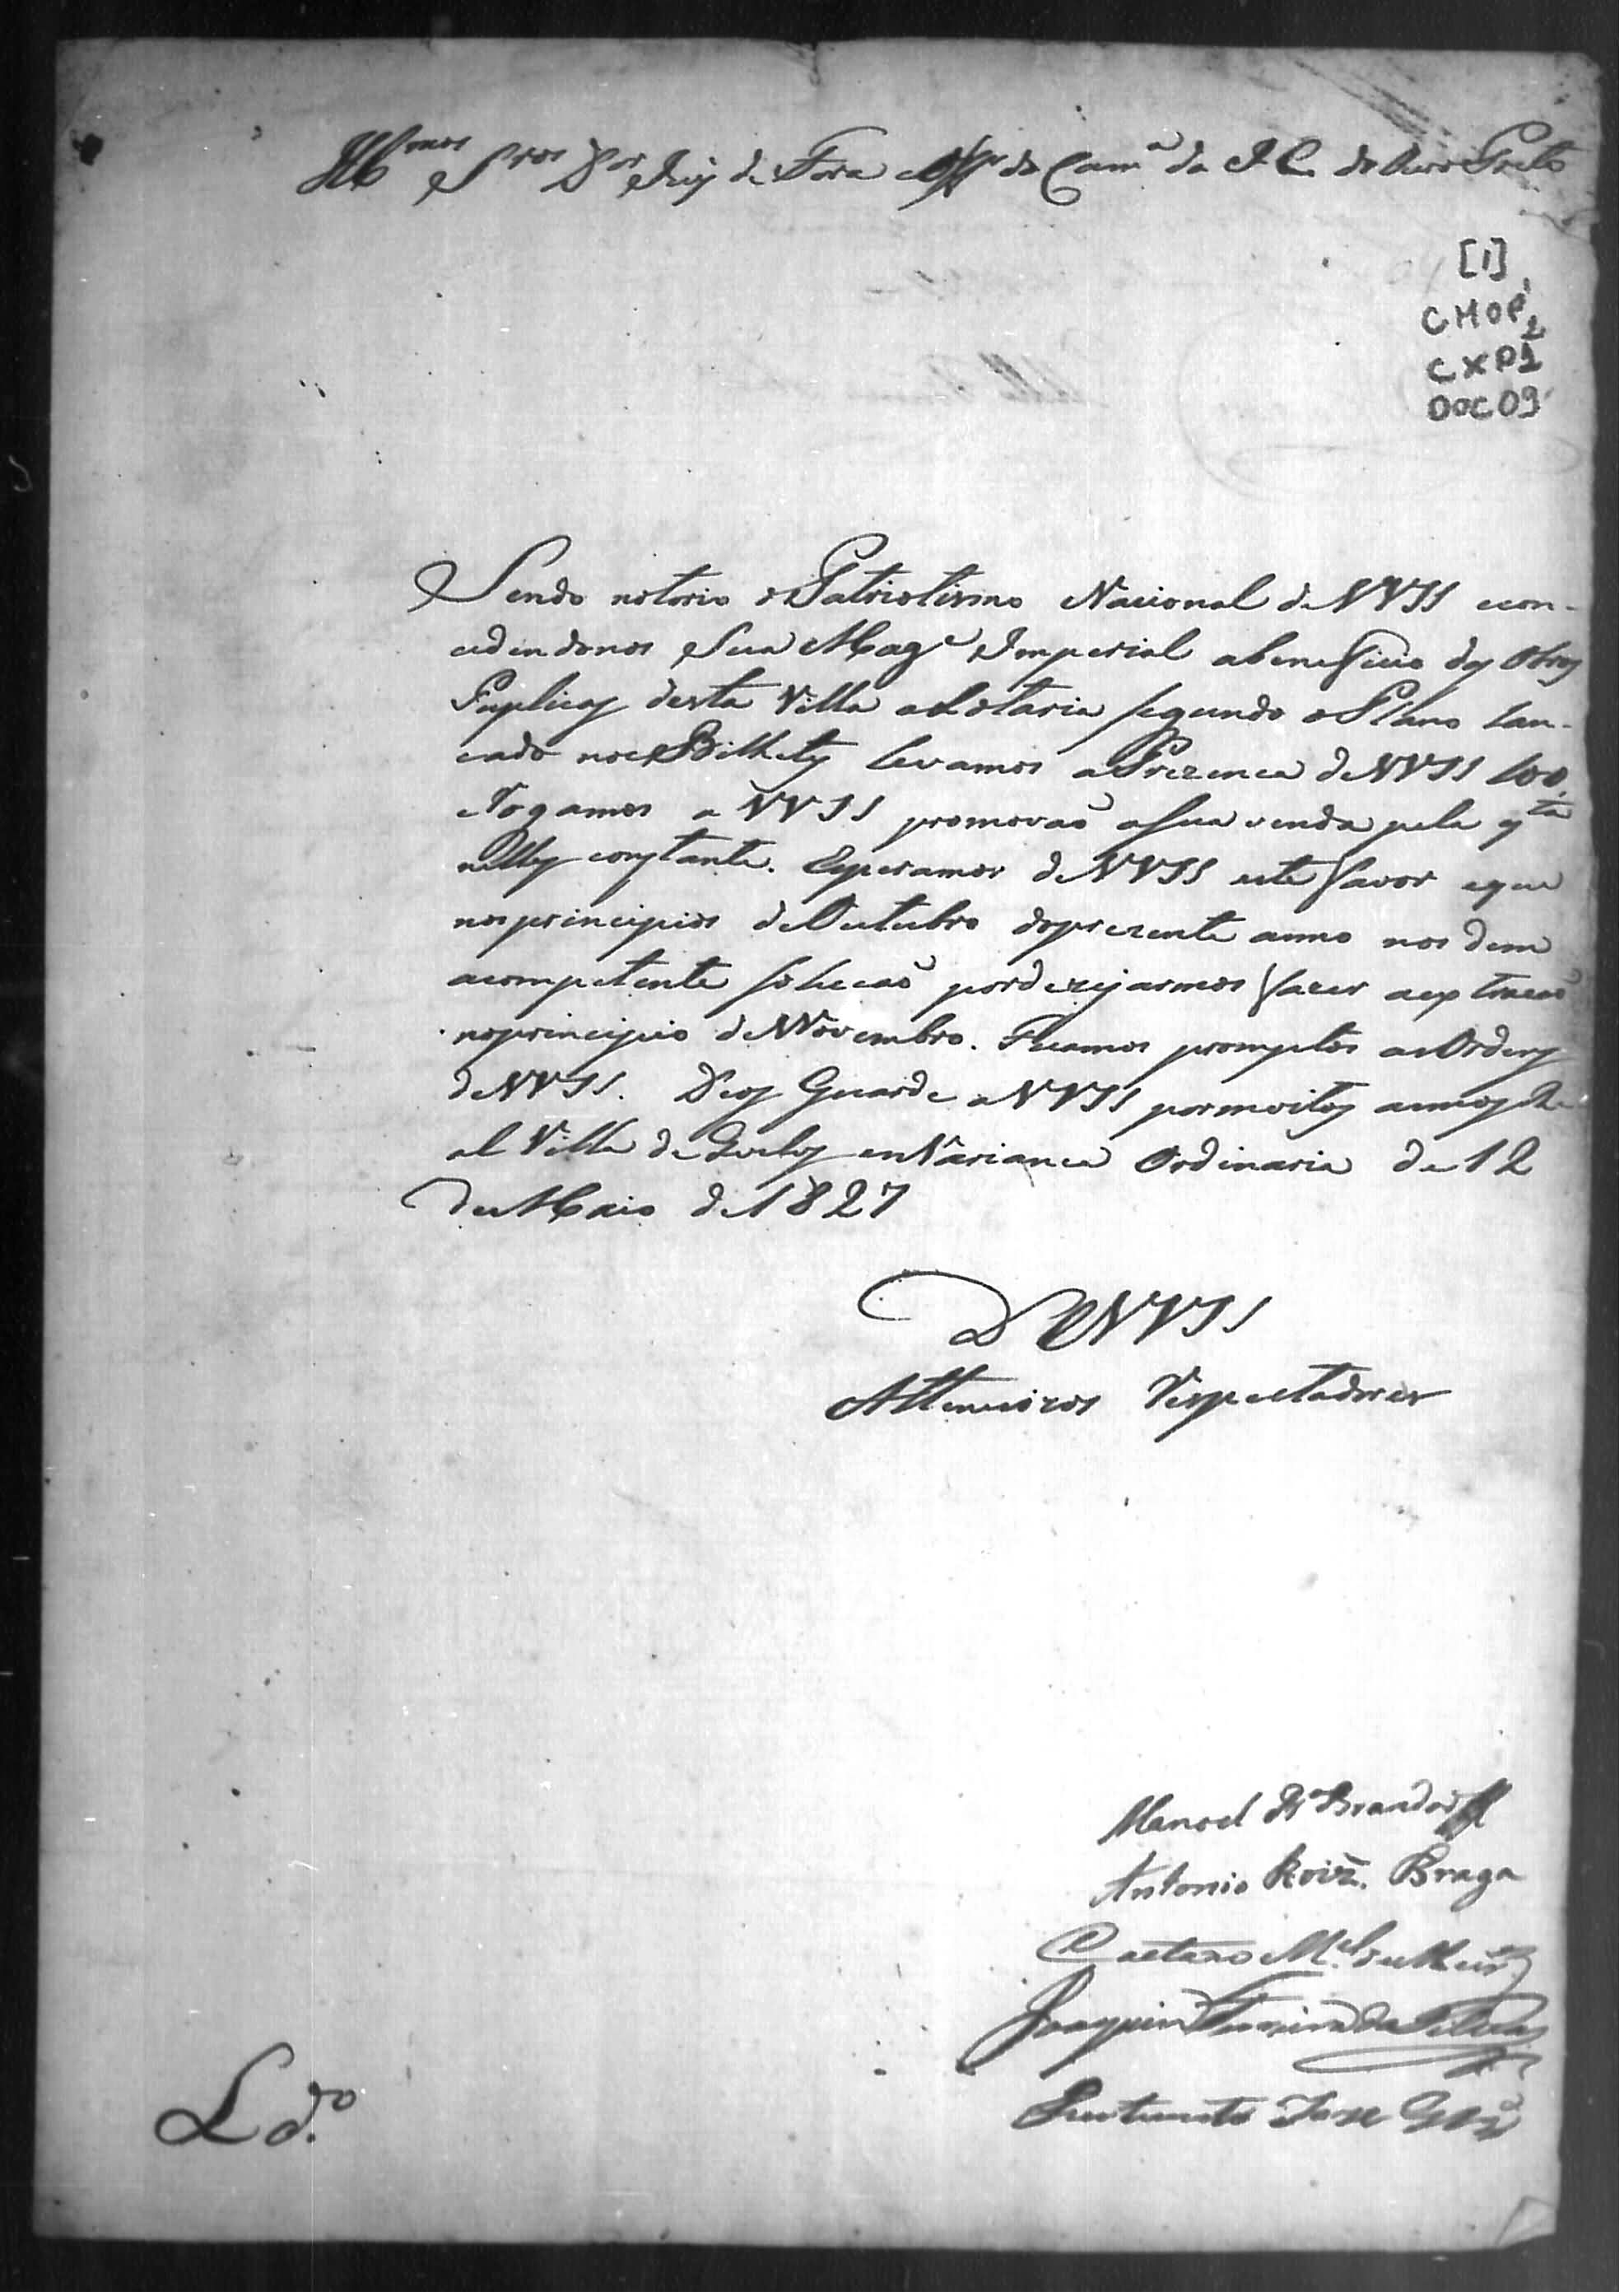 Ill.mos Snr.os D.or Juiz de Fora e Off.es da Cam.a da I. C. do Ouro Preto
[1]
CMOP
CXP1
DOC 09
Sendo notorio o Patriotismo Nacional de VVSS econ-
cedendonos Sua Mag.e Imperial abeneficio das Obras
Puplicas desta Villa a Lotaria segundo o Plano lan-
cado nos Bilhetes levamos aPrezenca deVVSS 100,
eRogamos a VVSS promovaõ aSua venda pela q.ta
nelles constante. Esperamos deVVSS este favor eque
nosprincipios deOutubro doprezente anno nos dem
acompetente solucaõ pordezejarmos fazer aextracaõ
noprincipio deNovembro. Ficamos promptos as Ordens
deVVSS. Deos Guarde aVVSS pormoitos annos
al Villa de em Variança Ordinaria de 12
de Maio de 1827
De VVSS
Attenciozos Respectadores
Manoel Brandaõ
Antonio Roiz. Braga
Caetano M.el de
Joaquim Ferreira da Silva
Jose
L.do